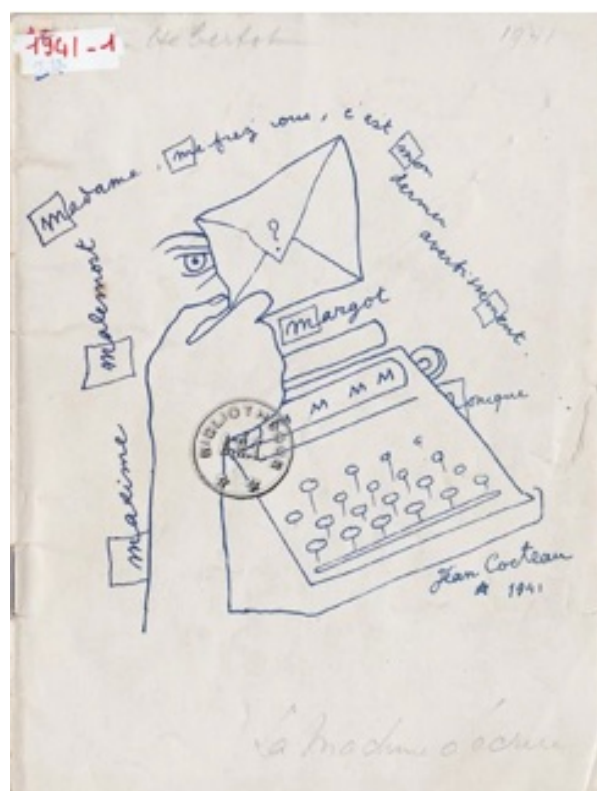 1941-1
Hébertot
1941
Madame, méfiez vous, c'est mon dernier avertissement.
Malemort
Maxime
?
Margot
M M M
Monique
BIBLIOTHÈQUE
Jean Cocteau
1941
La Machine à écrire